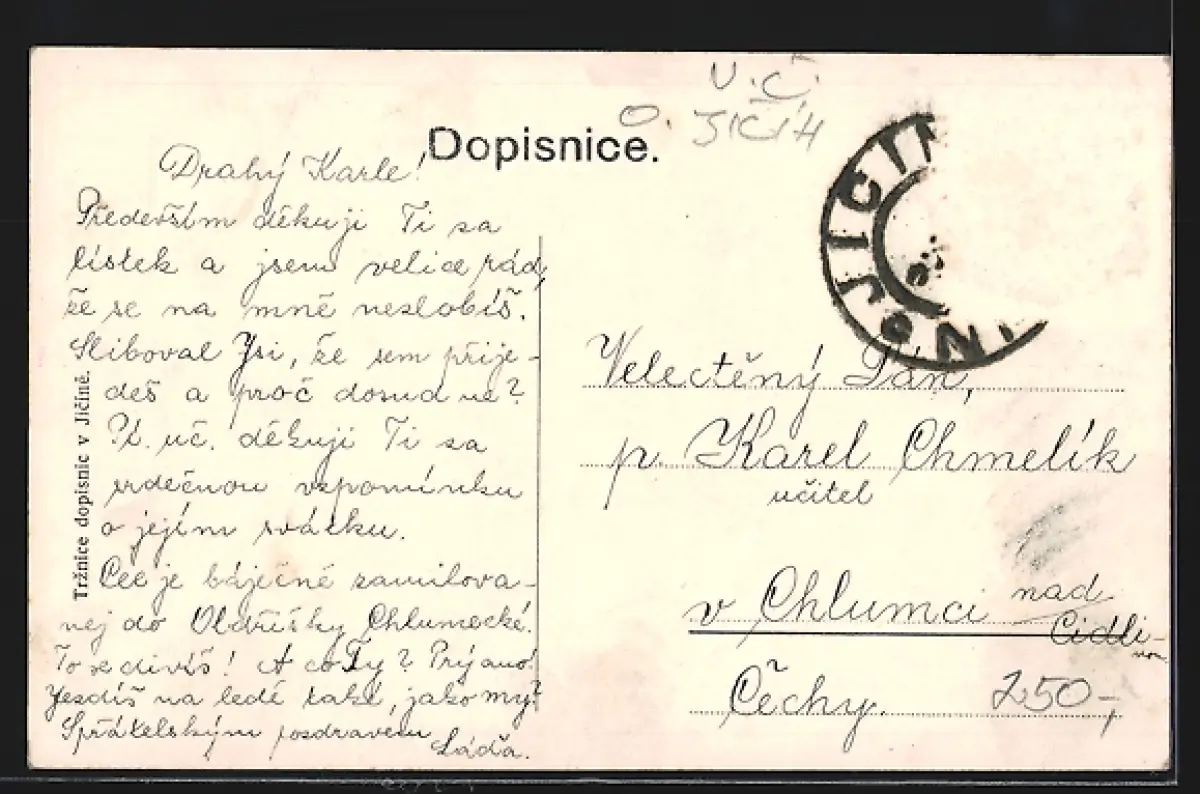 V.Č.
O. JIČÍN
Dopisnice.
JIČÍN
Drahý Karle!
Především děkuji Ti za
lístek a jsem velice rád,
že se na mně nezlobíš.
Sliboval Jsi, že sem přije-
deš a proč dosud ne?
Pí. uč. děkuji Ti za
srdečnou vzpomínku
o jejím svátku.
je báječně zamilova-
nej do Oldřišky Chlumecké.
To se divíš! A co Ty? Prý ano!
Jezdíš na ledě také, jako my?
Spřátelským pozdravem
Láďa.
Tržnice dopisnic v Jičíně.
Velectěný Pán,
p. Karel Chmelík
učitel
v Chlumci nad
Cidli-
nou
Čechy.
250,-